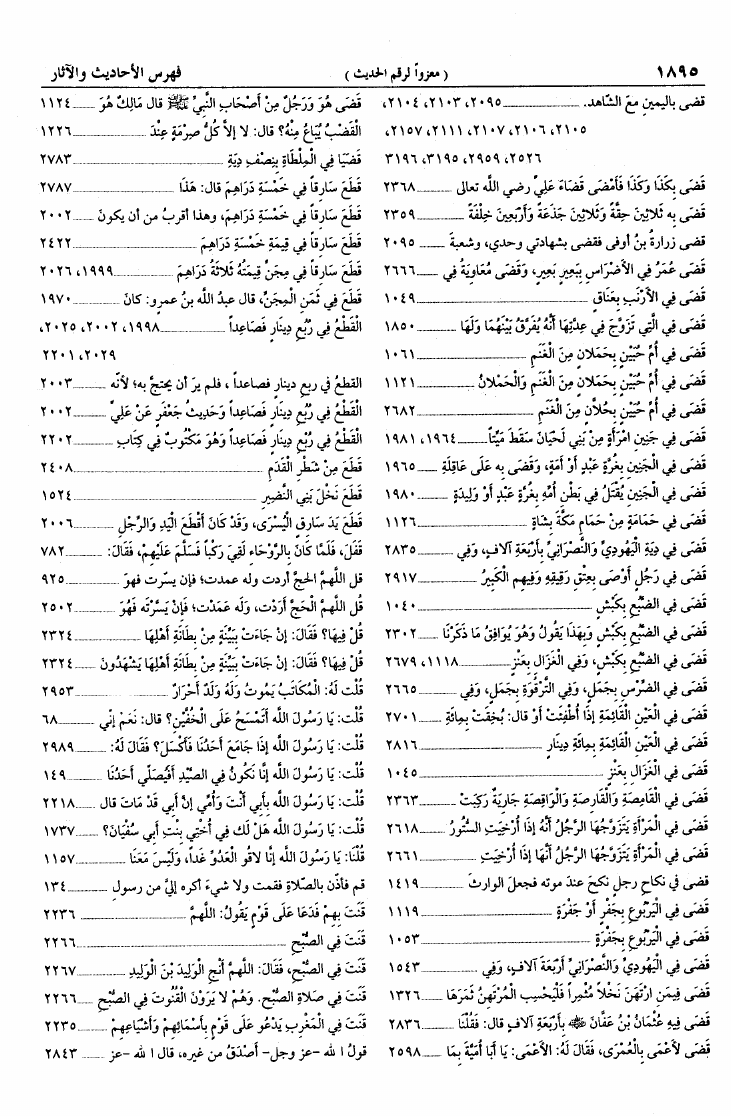 ١٨٩٥
( معزواً لرقم الحديث )
فهرس الأحاديث والآثار
قضى باليمين معَ الشاهد. ــــــ ٢٠٩٥، ٢١٠٣، ٢١٠٤،
٢١٠٥، ٢١٠٦، ٢١٠٧، ٢١١١، ٢١٥٧،
٢٥٢٦، ٢٩٥٩، ٣١٩٥، ٣١٩٦
قَضَى بِكَذَا وَكَذَا فَأَمْضَى قَضَاءَ عَلِيٍّ رضي الله تعالى ــــــ ٢٣٦٨
قَضَى بِه ثَلاثِينَ حِقَّةً وَثَلاثِينَ جَذَعَةً وَأَرْبَعِينَ خَلِفَةً ــــــ ٢٣٥٩
قضى زرارةُ بنُ أوفى فقضى بشهادتي وحدي، وشعبة ــــــ ٢٠٩٥
قَضَى عُمَرُ فِي الأَضْرَاسِ بِبَعِيرٍ بَعِيرٍ، وَقَضَى مُعَاوِيَةُ فِي ــــــ ٢٦٦٦
قَضَى فِي الأَرْنَبِ بِعَنَاقٍ ــــــ ١٠٤٩
قَضَى فِي الَّتِي تَزَوَّجَ فِي عِدَّتِهَا أَنَّهُ يُفَرَّقُ بَيْنَهُمَا وَلَهَا ــــــ ١٨٥٠
قَضَى فِي أُمِّ حُبَيْنٍ بِحَمَلانٍ مِنَ الْغَنَمِ ــــــ ١٠٦١
قَضَى فِي أُمِّ حُبَيْنٍ بِحَمَلانٍ مِنَ الْغَنَمِ وَالْحَمْلانُ ــــــ ١١٢١
قَضَى فِي أُمِّ حُبَيْنٍ بِحُلانٍ مِنَ الْغَنَمِ ــــــ ٢٦٨٢
قَضَى فِي جَنِينِ امْرَأَةٍ مِنْ بَنِي لَحْيَانَ سَقَطَ مَيِّتًا ــــــ ١٩٦٤، ١٩٨١
قَضَى فِي الْجَنِينِ بِغُرَّةٍ عَبْدٍ أَوْ أَمَةٍ، وَقَضَى بِه عَلَى عَاقِلَةِ ــــــ ١٩٦٥
قَضَى فِي الْجَنِينِ يُقْتَلُ فِي بَطْنِ أُمِّهِ بِغُرَّةٍ عَبْدٍ أَوْ وَلِيدَةٍ ــــــ ١٩٨٠
قَضَى فِي حَمَامَةٍ مِنْ حَمَامِ مَكَّةَ بِشَاةٍ ــــــ ١١٢٦
قَضَى فِي دِيَةِ الْيَهُودِيِّ وَالنَّصْرَانِيِّ بِأَرْبَعَةِ آلافٍ، وَفِي ــــــ ٢٨٣٥
قَضَى فِي رَجُلٍ أَوْصَى بِعِتْقِ رَقِيقِهِ وَفِيهِم الْكَبِيرُ ــــــ ٢٩١٧
قَضَى فِي الضَّبُعِ بِكَبْشٍ ــــــ ١٠٤٠
قَضَى فِي الضَّبُعِ بِكَبْشٍ وَبِهَذَا يَقُولُ وَهُوَ يُوَافِقُ مَا ذَكَرْنَا ــــــ ٢٣٠٢
قَضَى فِي الضَّبُعِ بِكَبْشٍ، وَفِي الْغَزَالِ بِعَنْزٍ ــــــ ١١١٨، ٢٦٧٩
قَضَى فِي الضِّرْسِ بِجَمَلٍ، وَفِي التَّرْقُوَةِ بِجَمَلٍ، وَفِي ــــــ ٢٦٦٥
قَضَى فِي الْعَيْنِ الْقَائِمَةِ إذَا أُطْفِئَتْ أَوْ قال: بُخِقَتْ بِمِائَةِ ــــــ ٢٧٠١
قَضَى فِي الْعَيْنِ الْقَائِمَةِ بِمِائَةِ دِينَارٍ ــــــ ٢٨١٦
قَضَى فِي الْغَزَالِ بِعَنْزٍ ــــــ ١٠٤٥
قَضَى فِي الْقَامِصَةِ وَالْقَارِصَةِ وَالْوَاقِصَةِ جَارِيَةٌ رَكِبَتْ ــــــ ٢٣٦٣
قَضَى فِي الْمَرْأَةِ يَتَزَوَّجُهَا الرَّجُلُ أَنَّهُ إذَا أُرْخِيَتِ السُّتُورُ ــــــ ٢٦١٨
قَضَى فِي الْمَرْأَةِ يَتَزَوَّجُهَا الرَّجُلُ أَنَّهَا إذَا أُرْخِيَتِ ــــــ ٢٦٦١
قضى في نكاحِ رجلٍ نكحَ عندَ موته فجعلَ الوارثَ ــــــ ١٤١٩
قَضَى فِي الْيَرْبُوعِ بِجَفْرٍ أَوْ جَفْرَةٍ ــــــ ١١١٩
قَضَى فِي الْيَرْبُوعِ بِجَفْرَةٍ ــــــ ١٠٥٣
قَضَى فِي الْيَهُودِيِّ وَالنَّصْرَانِيِّ أَرْبَعَةَ آلافٍ، وَفِي ــــــ ١٥٤٣
قَضَى فِيمَنِ ارْتَهَنَ نَخْلاً مُثْمِراً فَلْيَحْسِبِ الْمُرْتَهِنُ ثَمَرَهَا ــــــ ١٣٢٦
قَضَى فِيهِ عُثْمَانُ بْنُ عَفَّانَ ﷺ بِأَرْبَعَةِ آلافٍ قال: فَقُلْنَا ــــــ ٢٨٣٦
قَضَى لأَعْمَى بِالْعُمْرَى، فَقَالَ لَهُ: الأَعْمَى: يَا أَبَا أُمَيَّةَ بِمَا ــــــ ٢٥٩٨
قَضَى هُوَ وَرَجُلٌ مِنْ أَصْحَابِ النَّبِيِّ ﷺ قال مَالِكٌ هُوَ ــــــ ١١٢٤
الْقَضْبُ يُبَاعُ مِنْهُ؟ قال: لا إلاَّ كُلُّ صِرْمَةٍ عِنْدَ ــــــ ١٢٢٦
قَضَيَا فِي الْمِلْطَاةِ بِنِصْفِ دِيَةِ ــــــ ٢٧٨٣
قَطَعَ سَارِقاً فِي خَمْسَةِ دَرَاهِمَ قال: هَذَا ــــــ ٢٧٨٧
قَطَعَ سَارِقاً فِي خَمْسَةِ دَرَاهِمَ، وهذا أقربُ من أن يكونَ ــــــ ٢٠٠٢
قَطَعَ سَارِقاً فِي قِيمَةِ خَمْسَةِ دَرَاهِمَ ــــــ ٢٤٢٢
قَطَعَ سَارِقاً فِي مِجَنٍّ قِيمَتُهُ ثَلاثَةُ دَرَاهِمَ ــــــ ١٩٩٩، ٢٠٢٦
قَطَعَ فِي ثَمَنِ الْمِجَنِّ، قال عبدُ الله بنُ عمرو: كانَ ــــــ ١٩٧٠
الْقَطْعُ فِي رُبُعِ دِينَارٍ فَصَاعِداً ــــــ ١٩٩٨، ٢٠٠٢، ٢٠٢٥،
٢٠٢٩، ٢٢٠١
القطعُ في ربعِ دينارٍ فصاعداً ، فلم يرَ أن يحتجَّ به؛ لأنّه ــــــ ٢٠٠٣
الْقَطْعُ فِي رُبُعِ دِينَارٍ فَصَاعِداً وَحَدِيثُ جَعْفَرٍ عَنْ عَلِيٍّ ــــــ ٢٠٠٢
الْقَطْعُ فِي رُبُعِ دِينَارٍ فَصَاعِداً وَهُوَ مَكْتُوبٌ فِي كِتَابِ ــــــ ٢٢٠٢
قَطَعَ مِنْ شَطْرِ الْقَدَمِ ــــــ ٢٤٠٨
قَطَعَ نَخْلَ بَنِي النَّضِيرِ ــــــ ١٥٢٤
قَطَعَ يَدَ سَارِقِ الْيُسْرَى، وَقَدْ كَانَ أَقْطَعَ الْيَدِ وَالرِّجْلِ ــــــ ٢٠٠٦
قَفَلَ، فَلَمَّا كَانَ بِالرَّوْحَاءِ لَقِيَ رَكْباً فَسَلَّمَ عَلَيْهِمْ، فَقَالَ: ــــــ ٧٨٢
قل اللهمَّ الحجَّ أردت وله عمدت؛ فإن يسّرت فهوَ ــــــ ٩٢٥
قُل اللهُمَّ الْحَجَّ أَرَدْتُ، وَلَه عَمَدْتُ؛ فَإنْ يَسَّرْتَه فَهُوَ ــــــ ٢٥٠٢
قُلْ فِيهَا؟ فَقَالَ: إنْ جَاءَتْ بِبَيِّنَةٍ مِنْ بِطَانَةِ أَهْلِهَا ــــــ ٢٣٢٤
قُلْ فِيهَا؟ فَقَالَ: إنْ جَاءَتْ بِبَيِّنَةٍ مِنْ بِطَانَةِ أَهْلِهَا يَشْهَدُونَ ــــــ ٢٣٢٤
قُلْت لَهُ: الْمُكَاتَبُ يَمُوتُ وَلَهُ وَلَدٌ أَحْرَارٌ ــــــ ٢٩٥٣
قُلْت: يَا رَسُولَ الله أَتَمْسَحُ عَلَى الْخُفَّيْنِ؟ قال: نَعَمْ إنِّي ــــــ ٦٨
قُلْت: يَا رَسُولَ الله إذَا جَامَعَ أَحَدُنَا فَأَكْسَلَ؟ فَقَالَ لَهُ: ــــــ ٢٩٨٩
قُلْت: يَا رَسُولَ الله إنَّا نَكُونُ فِي الصَّيْدِ أَفَيُصَلِّي أَحَدُنَا ــــــ ١٤٩
قُلْت: يَا رَسُولَ الله بِأَبِي أَنْتَ وَأُمِّي إنَّ أَبِي قَدْ مَاتَ قال ــــــ ٢٢١٨
قُلْت: يَا رَسُولَ الله هَلْ لَك فِي أُخْتِي بِنْتِ أَبِي سُفْيَانَ؟ ــــــ ١٧٣٧
قُلْنَا: يَا رَسُولَ الله إنَّا لاقُو الْعَدُوِّ غَداً، وَلَيْسَ مَعَنَا ــــــ ١١٥٧
قم فأذّن بالصَّلاةِ فقمت ولا شيءَ أكره إليَّ من رسولِ ــــــ ١٣٤
قَنَتَ بِهِمْ فَدَعَا عَلَى قَوْمٍ يَقُولُ: اللهُمَّ ــــــ ٢٢٣٦
قَنَتَ فِي الصُّبْحِ ــــــ ٢٢٦٦
قَنَتَ فِي الصُّبْحِ، فَقَالَ: اللهُمَّ أَنْجِ الْوَلِيدَ بْنَ الْوَلِيدِ ــــــ ٢٢٦٧
قَنَتَ فِي صَلاةِ الصُّبْحِ. وَهُمْ لا يَرَوْنَ الْقُنُوتَ فِي الصُّبْحِ ــــــ ٢٢٦٦
قَنَتَ فِي الْمَغْرِبِ يَدْعُو عَلَى قَوْمٍ بِأَسْمَائِهِمْ وَأَشْيَاعِهِمْ ــــــ ٢٢٣٥
قولُ الله -عز وجل- أصْدَقُ من غيره، قال الله -عز ــــــ ٢٨٤٣